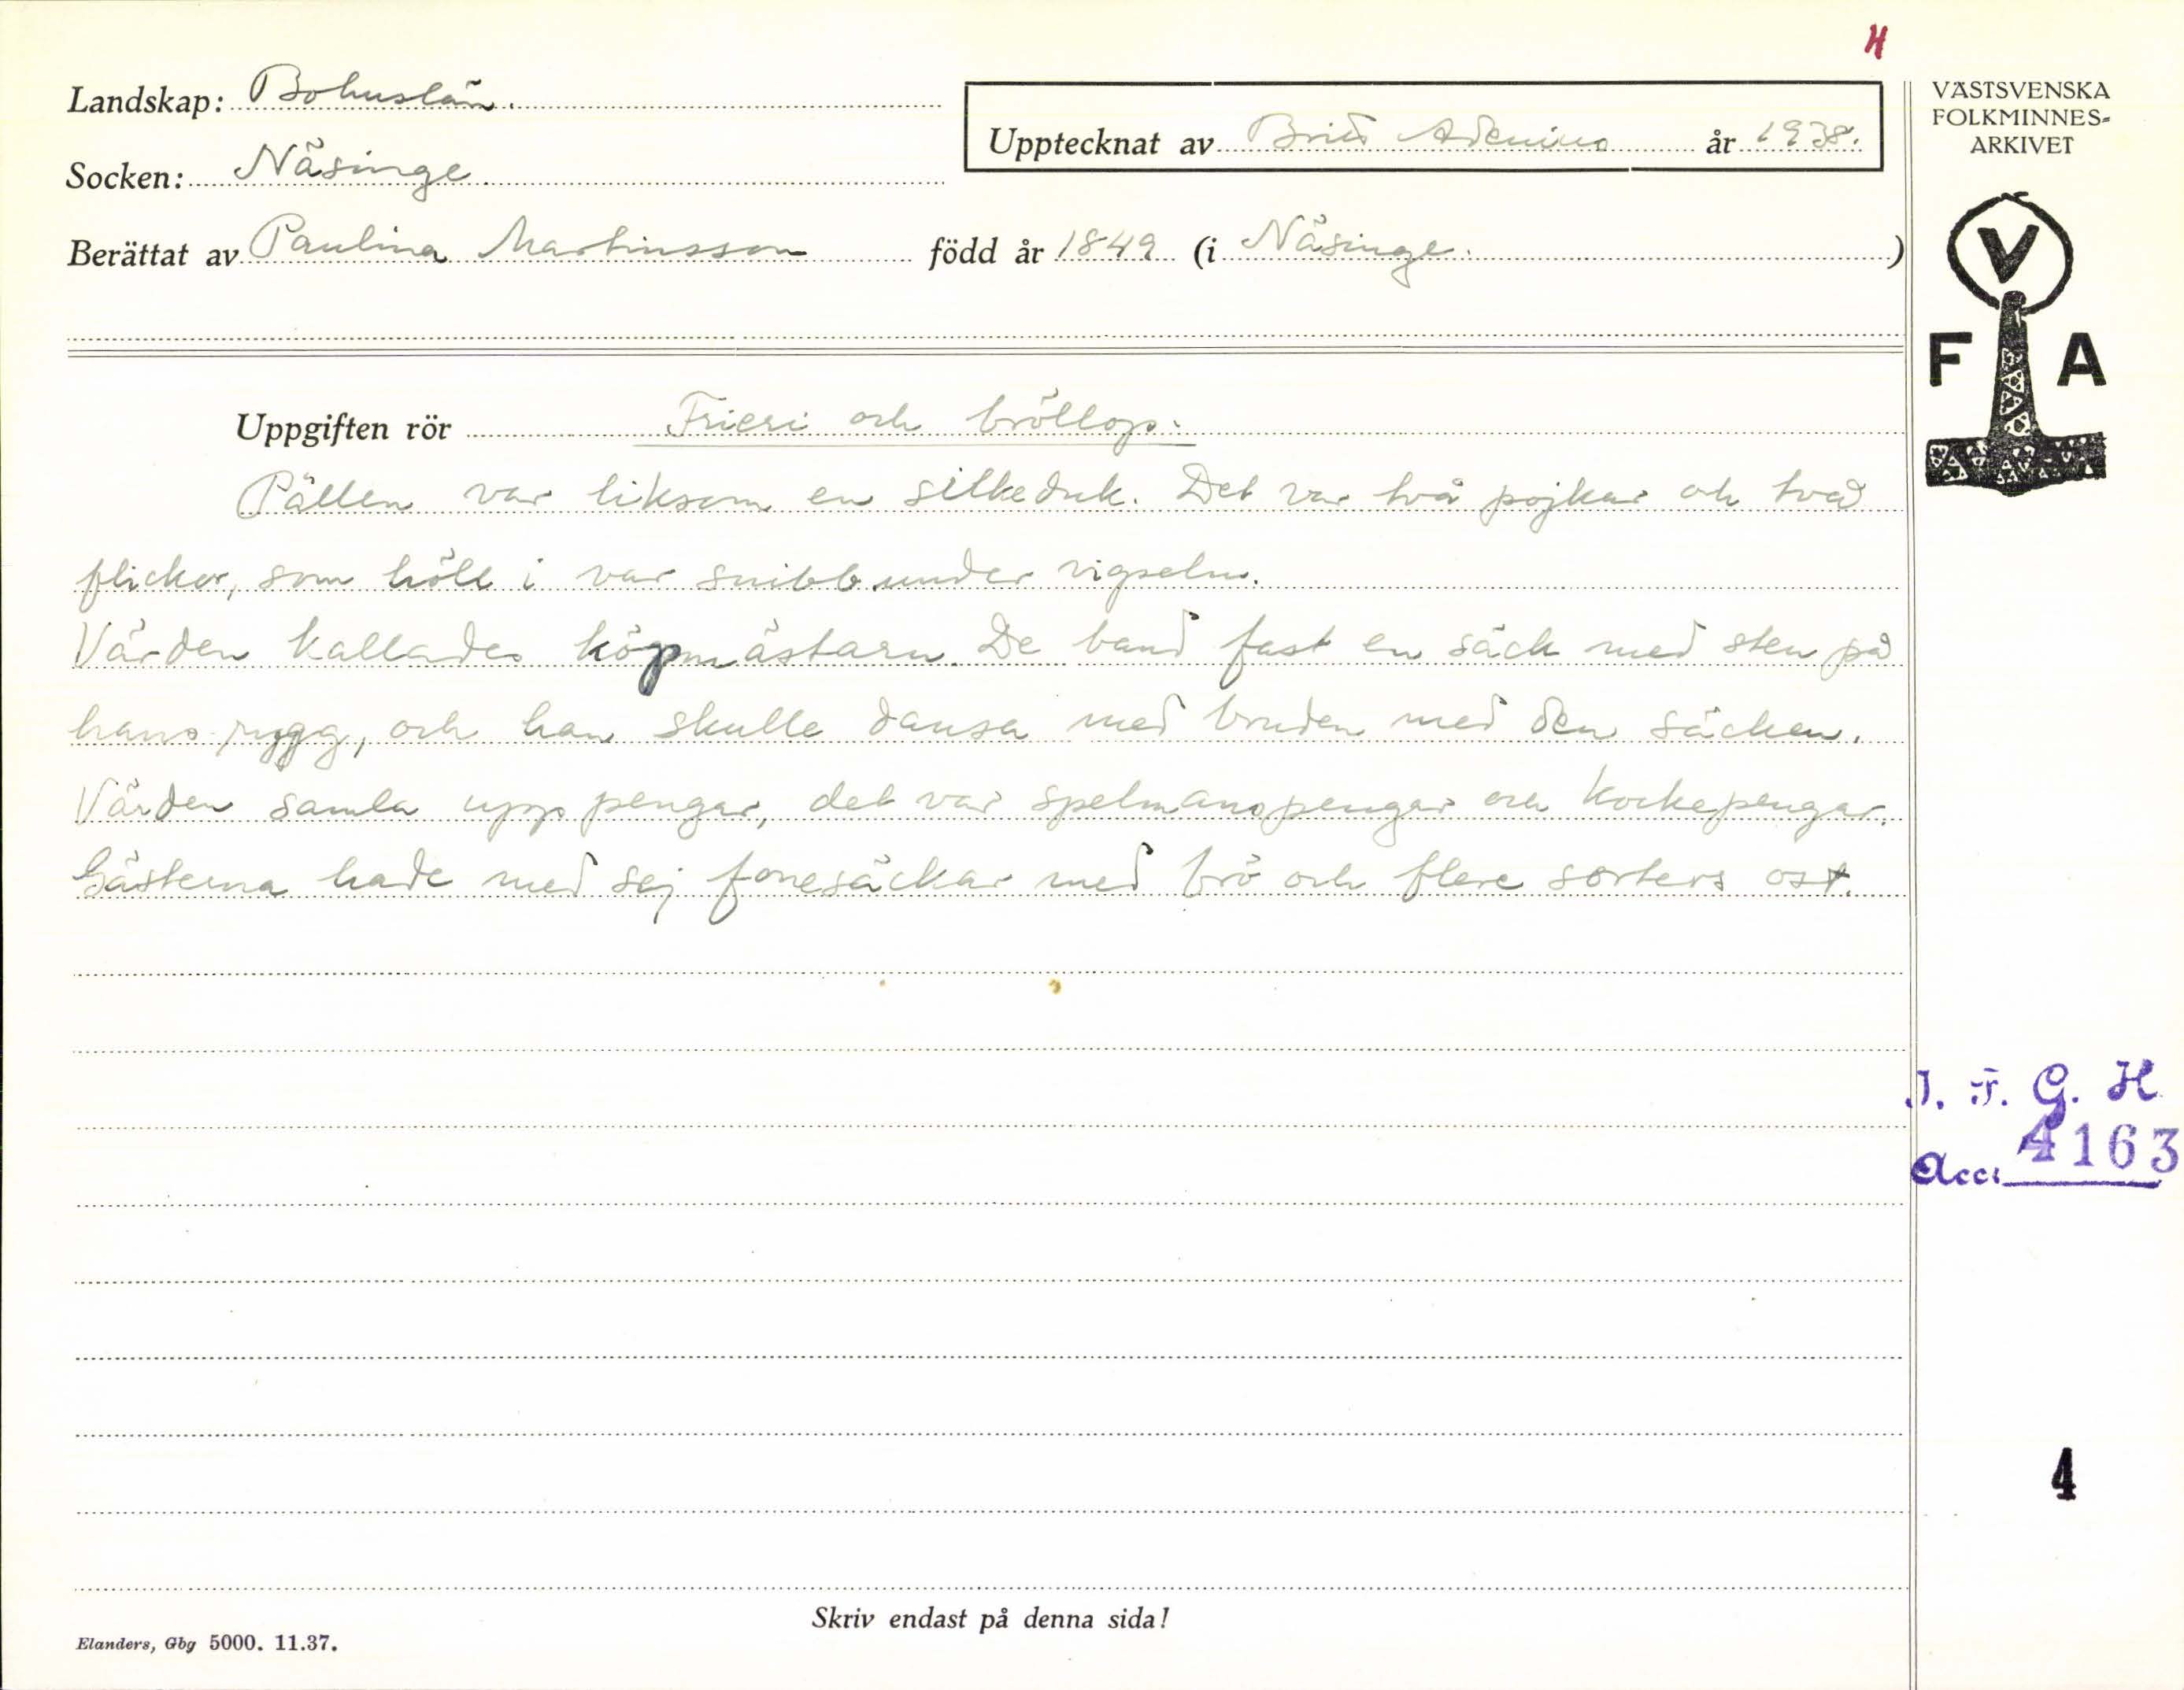 H
Landskap: Bohuslän.
Socken: Näsinge
Upptecknat av Britt år 1938.
Berättat av Paulina Martinsson född år 1849 (i Näsinge. )
VÄSTSVENSKA
FOLKMINNES-
ARKIVET
V
F A
Uppgiften rör Frieri och bröllop.
Pällen var liksom en silkeduk. Det var två pojkar och två
flickor, som höll i var snibb under vigseln.
Värden kallades köpmästarn. De band fast en säck med sten på
hans rygg, och han skulle dansa med bruden med den säcken.
Värden samla upp pengar, det var spelmanspengar och kockepengar.
Gästerna hade med sej fonesäckar med brö och flere sorters ost.
I. F. G. H
Acc. 4163
4
Skriv endast på denna sida!
Elanders, Gbg 5000. 11.37.